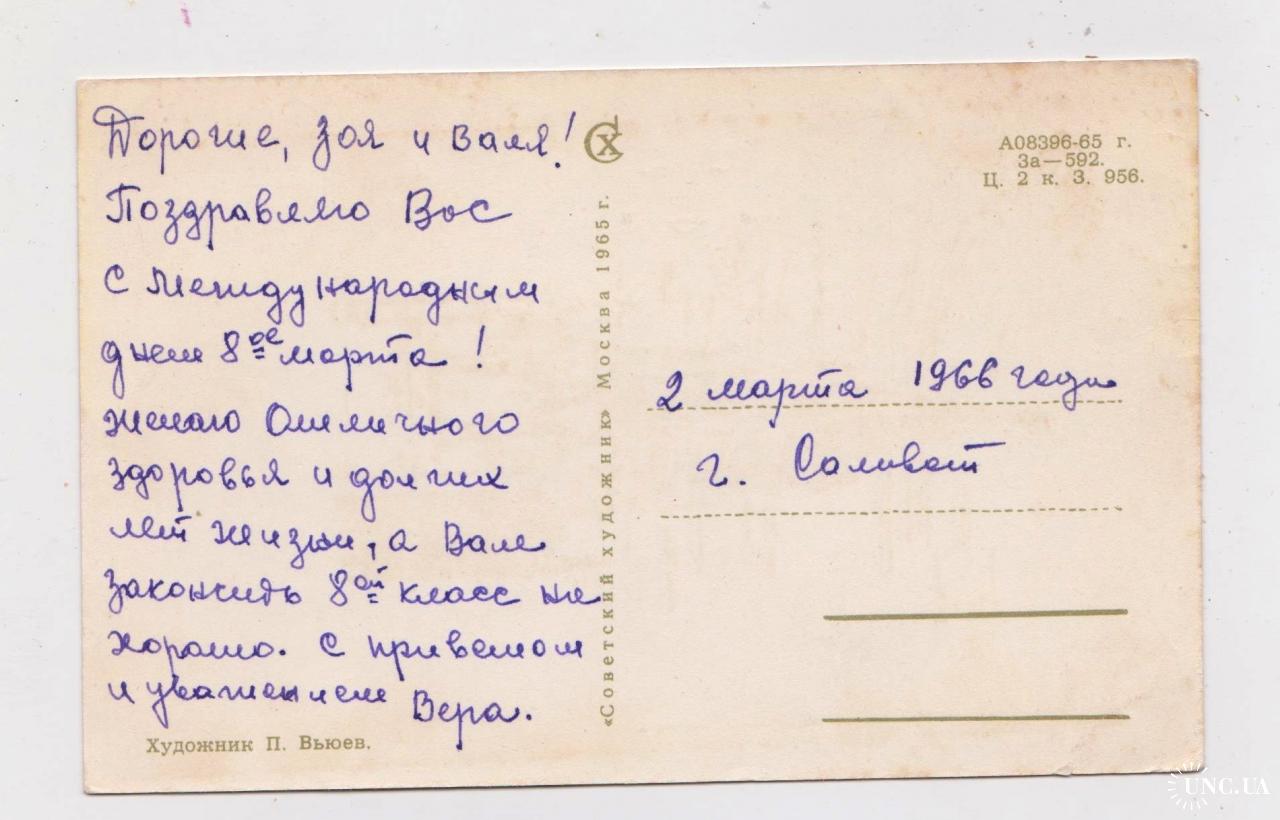 Дорогие, Зоя и Валя!
Поздравляю Вас
с Международным
днем 8ое марта!
желаю Отличного
здоровья и долгих
лет жизни, а Вале
закончить 8ой класс на
хорошо. С приветом
и уважением Вера.
Художник П. Вьюев.
СХ
«Советский художник» Москва 1965 г.
А08396-65 г.
За—592.
Ц. 2 к. З. 956.
2 марта 1966 года
г. Салават
UNC.UA